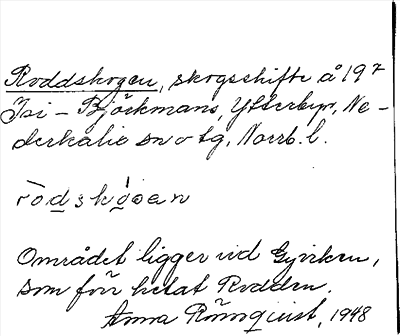 Roddskogen, skogsskifte å 19⁷
Isi - Björkmans, Ytterbyn, Ne-
derkalix sn o tg, Norrb. l.
ròdskó̱gan
Området ligger vid Gyviken,
som förr hetat Rodden.
Anna Rönnqvist, 1948